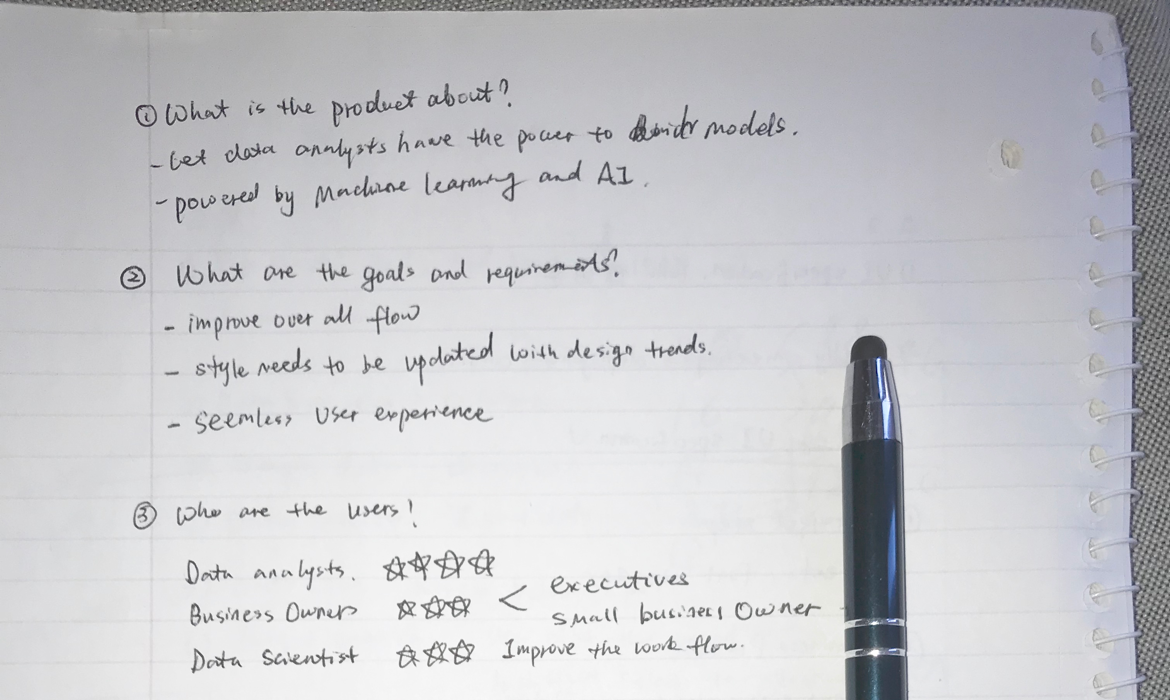 ① What is the product about?
- Let data analysts have the power to models.
- powered by Machine learning and AI.
② What are the goals and requirements?
- improve over all flow
- style needs to be updated with design trends.
- seemless user experience
③ Who are the users?
Data analysts. ☆☆☆☆
Business Owner ☆☆☆ < executives
small business Owner
Data Scientist ☆☆☆ Improve the work flow.